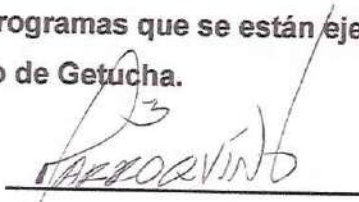 rogramas que se están eje
o de Getucha.